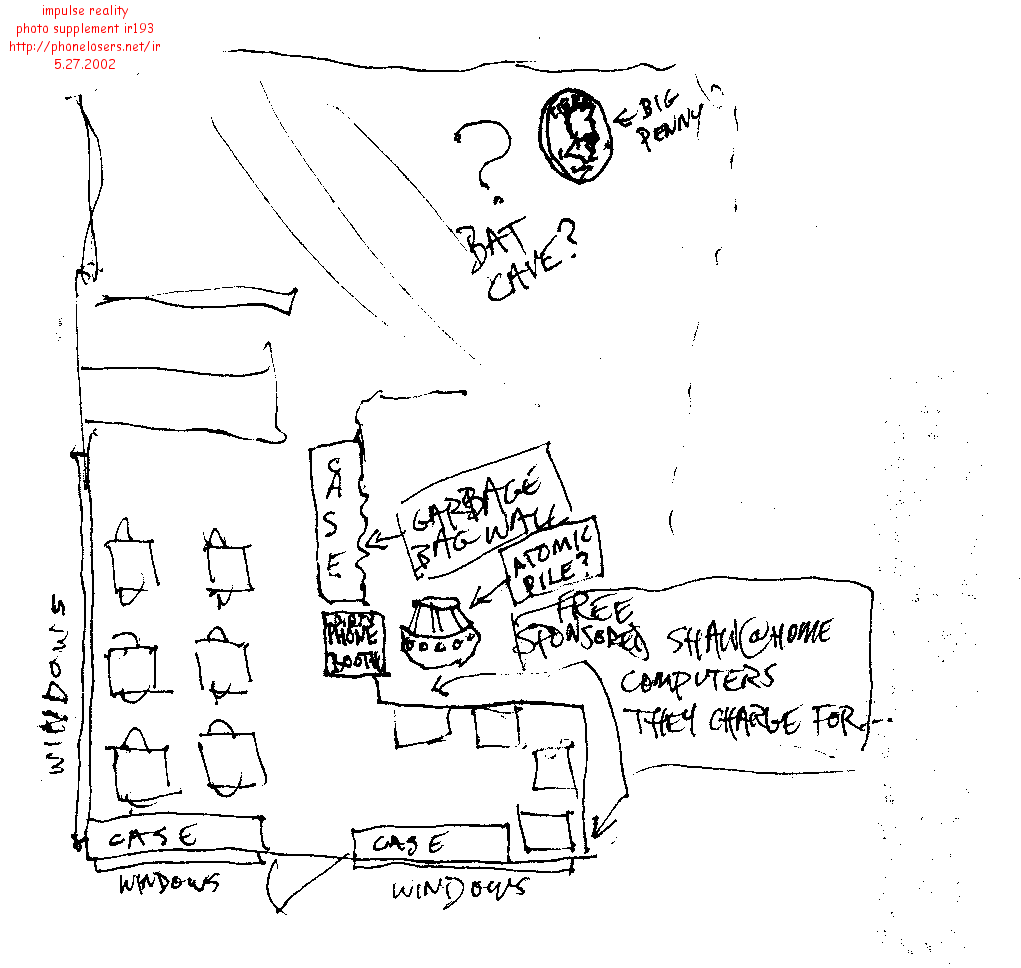 impulse reality
photo supplement ir193
http://phonelosers.net/ir
5.27.2002
BIG
PENNY
?
BAT
CAVE?
CASE
GARBAGE
BAG WALL
ATOMIC
PILE?
PHONE
BOOTH
FREE
SPONSORED SHAW@HOME
COMPUTERS
THEY CHARGE FOR...
WINDOWS
CASE
CASE
WINDOWS
WINDOWS